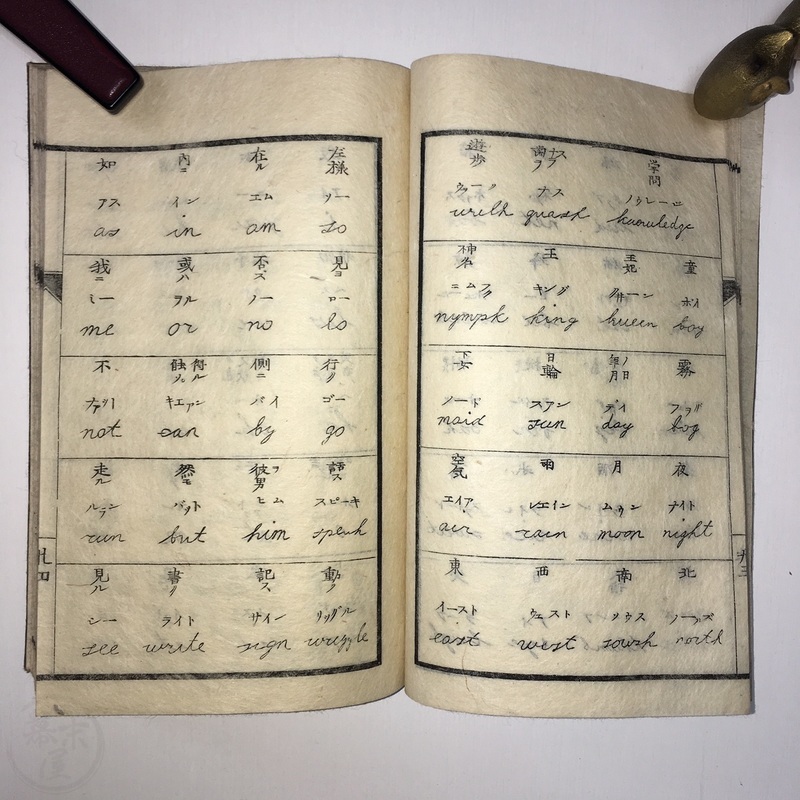 学問 歯ナスフ 遊歩
ノウレージ ナス ウォーク
knowledge quash
童 王妃 王 神名
ボイ クイーン キング ニムフ
boy hueen king nymph
霧 年月ノ日 日輪 下女
フヲグ デイ スアン メード
bog day sun maid
夜 月 雨 空気
ナイト ムウン レエイン エイア
night moon rain air
北 南 西 東
ノーッズ ソウス ウェスト イースト
north sowsh west east
九三
左様 在ル 内ニ 如
ソー エム イン アス
so am in as
見ヨ 否ズ 或ハ 我ニ
ロー ノー ヲル ミー
lo no or me
行ク 側ニ 得ル 不
ゴー バイ キエアン ナアット
go by can not
語ス 彼男ヲ 然モ 走ル
スピーキ ヒム バット ルラン
speak him but run
動ク 記ス 書ク 見ル
リッグル サイン ライト シー
wriggle sign write see
九四